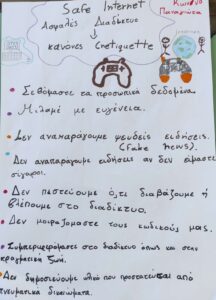 Safe Internet
Ασφαλές Διαδίκτυο
κανόνες (netiquette
Σεβόμαστε τα προσωπικά δεδομένα.
Μιλάμε με ευγένεια.
Δεν αναπαράγουμε ψευδείς ειδήσεις.
(fake news).
Δεν αναπαράγουμε ειδήσεις αν δεν είμαστε
σίγουροι.
Δεν πιστεύουμε ό,τι διαβάζουμε ή
βλέπουμε στο διαδίκτυο.
Δεν μοιραζόμαστε τους κωδικούς μας.
Συμπεριφερόμαστε στο διαδίκτυο όπως και στην
πραγματική ζωή.
Δεν δημοσιεύουμε υλικό που προστατεύεται από
πνευματικά δικαιώματα.